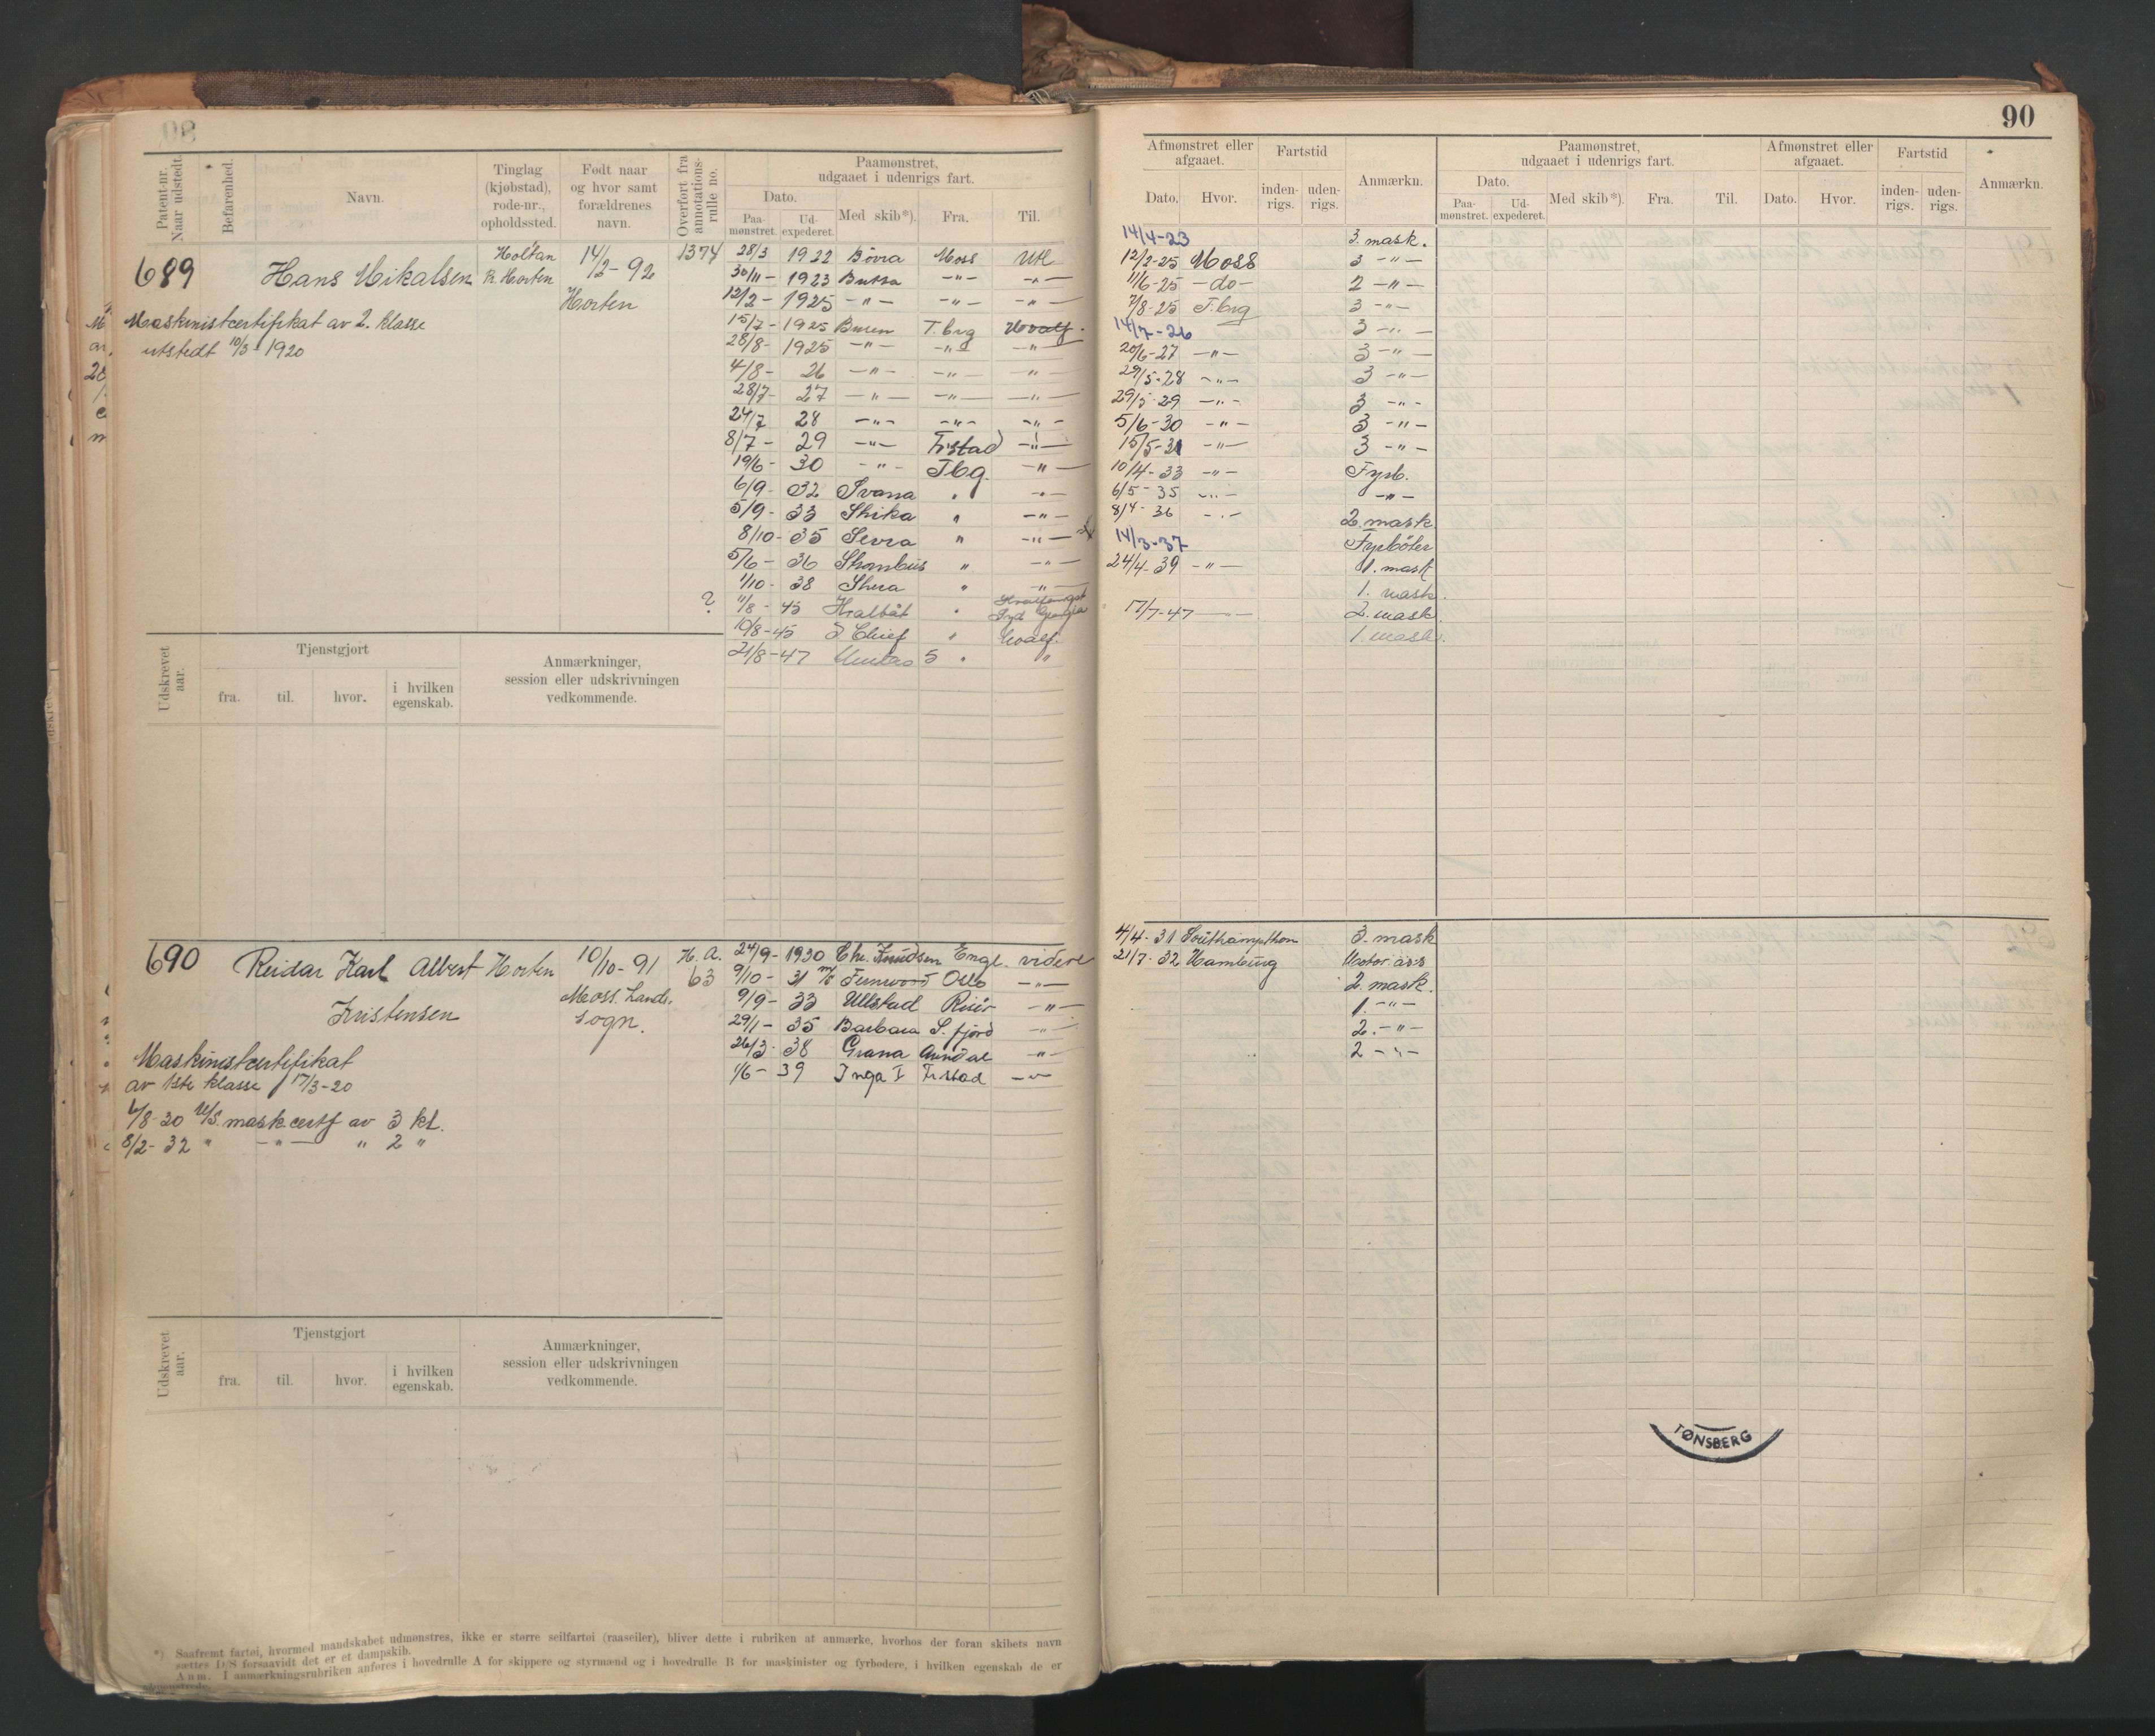 90
Patent-nr.
Naar udstedt.
Befarenhed.
Navn.
Tinglag
(kjøbstad),
rode-nr.,
opholdssted.
Født naar
og hvor samt
forældrenes
navn.
Overført fra
annotations-
rulle no.
Paamønstret,
udgaaet i udenrigs fart.
Dato.
Paa-
mønstret.
Ud-
expederet.
Med skib*).
Fra.
Til.
689
Hans Mikalsen
Holtan
pr. Horten
14/2-92
Horten
1374
Maskinistcertifikat av 2. klasse
utstedt 10/3-1920
28/3 1922 Bövra Moss Utl
30/11- 1923 -"- -"-
12/2- 1925 -"- -"- -"-
15/7- 1925 T.brg Hvalf.
28/8- 1925 -"- -"- -"-
4/8- 26 -"- -"- -"-
28/7- 27 -"- -"- -"-
24/7 28 -"- -"- -"-
8/7- 29 -"- Fr.stad -"-
19/6- 30 -"- Tbg. -"-
6/9- 32 Svana " -"-
5/9- 33 Shika " -"-
8/10- 35 Sevra " -"-
5/6- 36 Strombus " -"-
1/10- 38 Shera " -"-
? 11/8- 45 Hvalbåt " Hvalfangst
Syd Georgia
10/8-45 S. Chief " Hvalf.
21/8-47 Unitas 5 " "
Udskrevet
aar.
Tjenstgjort
fra.
til.
hvor.
i hvilken
egenskab.
Anmærkninger,
session eller udskrivningen
vedkommende.
690
Reidar Karl Albert
Kristensen
Horten
10/10-91
Moss. Lands.
sogn.
H. A.
63
Maskinistcertifikat
av 1ste klasse 17/3-20
6/8-30 M/S. mask.certf av 3 kl.
8/2-32 " -"- " 2 "
24/9-1930 Chr. Knudsen Engl. videre
9/10- 31 m/s Fernwood Oslo -"-
9/9- 33 Ullstad Risör -"-
29/1- 35 Barbara S. fjord -"-
26/3- 38 Grana Arendal -"-
1/6- 39 Inga I Fr.stad -"-
Udskrevet
aar.
Tjenstgjort
fra.
til.
hvor.
i hvilken
egenskab.
Anmærkninger,
session eller udskrivningen
vedkommende.
*) Saafremt fartøi, hvormed mandskabet udmønstres, ikke er større seilfartøi (raaseiler), bliver dette i rubriken at anmærke, hvorhos der foran skibets navn
sættes D/S forsaavidt det er et dampskib.
Anm. I anmærkningsrubriken anføres i hovedrulle A for skippere og styrmænd og i hovedrulle B for maskinister og fyrbødere, i hvilken egenskab de er
Afmønstret eller
afgaaet.
Dato.
Hvor.
Fartstid
inden-
rigs.
uden-
rigs.
Anmærkn.
Paamønstret,
udgaaet i udenrigs fart.
Dato.
Paa-
mønstret.
Ud-
expederet.
Med skib*).
Fra.
Til.
Afmønstret eller
afgaaet.
Dato.
Hvor.
Fartstid
inden-
rigs.
uden-
rigs.
Anmærkn.
14/4-23 3. mask.
12/2-25 Moss 3 -"-
11/6-25 -do- 2 -"-
7/8-25 T.brg 3 -"-
14/7-26 3 -"-
20/6-27 -"- 3 -"-
29/5-28 -"- 3 -"-
29/5-29 -"- 3 -"-
5/6-30 -"- 3 -"-
15/5-31 -"- 3 -"-
10/4-33 -"- Fyrb.
6/5-35 -"- -"-
8/4-36 -"- 2. mask
14/3-37 Fyrböter
24/4-39 -"- 1. mask
1. mask.
17/7-47 2. mask.
1. mask.
4/4-31 Southampthon 3. mask
21/7-32 Hamburg Motor ass
2. mask.
1. -"-
2. -"-
2 -"-
TØNSBERG